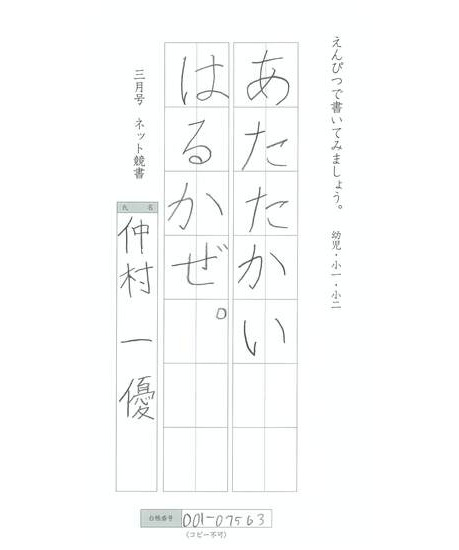 えんぴつで書いてみましょう。 幼児・小一・小二
あたたかい
はるかぜ。
三月号 ネット競書
氏名
仲村 一優
会員番号 001-07563
(コピー不可)